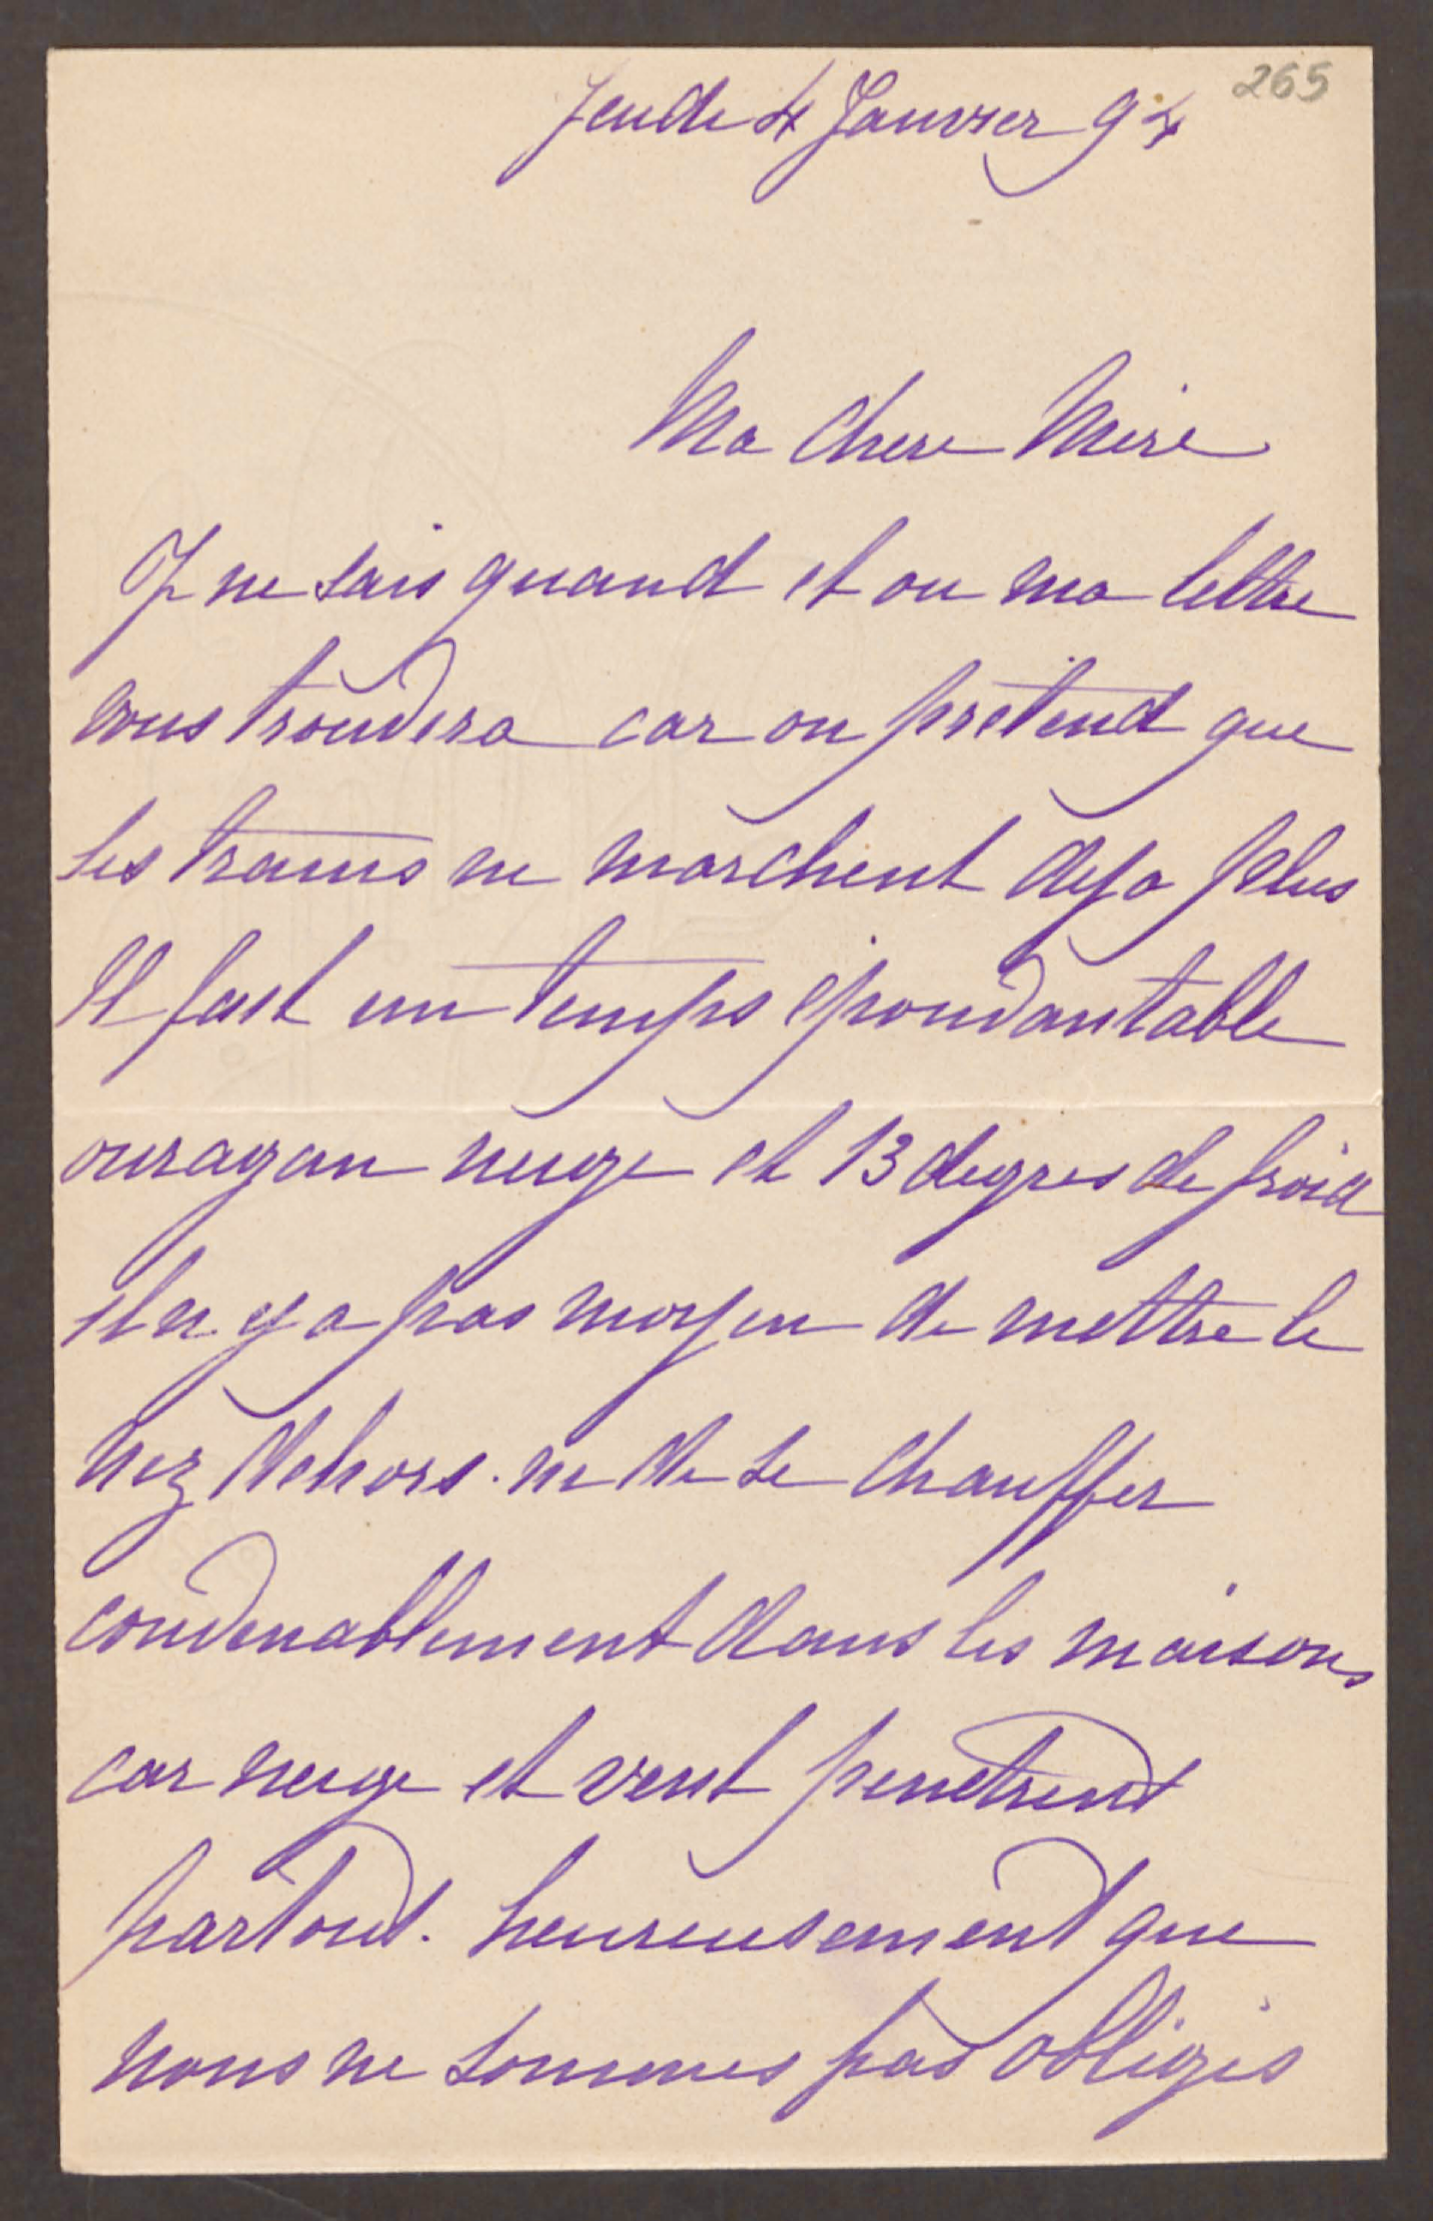 265
Jeudi 4 Janvier 94
Ma chere Mere
Je ne sais quand et ou ma lettre
vous trouvera car on pretend que
les trains ne marchent deja plus
Il fait un temps epouvantable
ouragan neige et 13 degres de froid
il n y a pas moyen de mettre le
nez dehors. ni de se chauffer
convenablement dans les maisons
car neige et vent penetrent
partout. heureusement que
nous ne sommes pas obliges